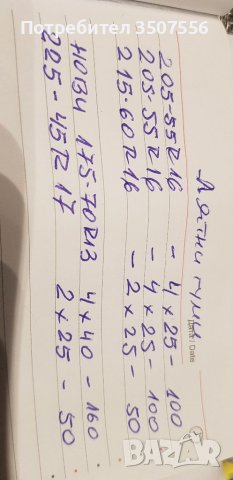 Потребител 3507556
Летни гуми
Дата / Date
205-55R16 - 4x25 - 100
205-55R16 - 4x25 - 100
215-60R16 - 2x25 - 50
НОВИ 175-70R13 4x40 - 160
225-45R17 2x25 - 50
BAZAR